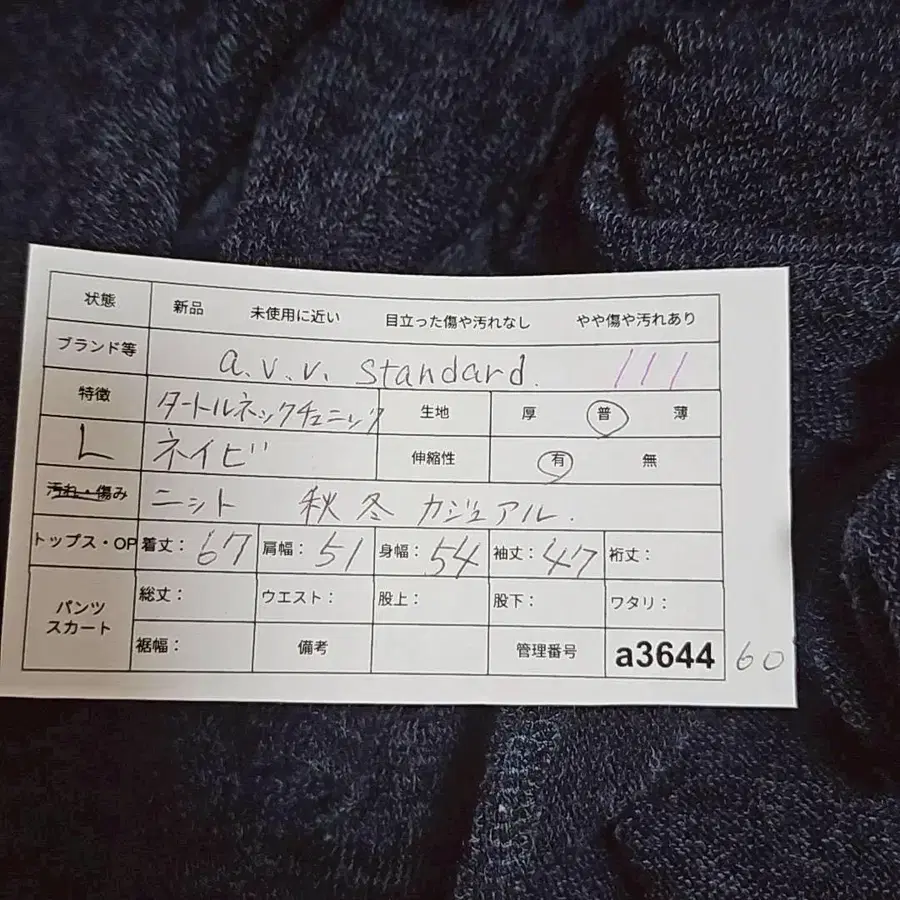 状態 新品 未使用に近い 目立った傷や汚れなし やや傷や汚れあり
ブランド等 a.v.v. standard. 111
特徴 タートルネックチュニック 生地 厚 普 薄
L ネイビー 伸縮性 有 無
汚れ・傷み ニット 秋冬 カジュアル.
トップス・OP 着丈: 67 肩幅: 51 身幅: 54 袖丈: 47 裄丈:
パンツ スカート 総丈: ウエスト: 股上: 股下: ワタリ:
裾幅: 備考 管理番号 a3644 60